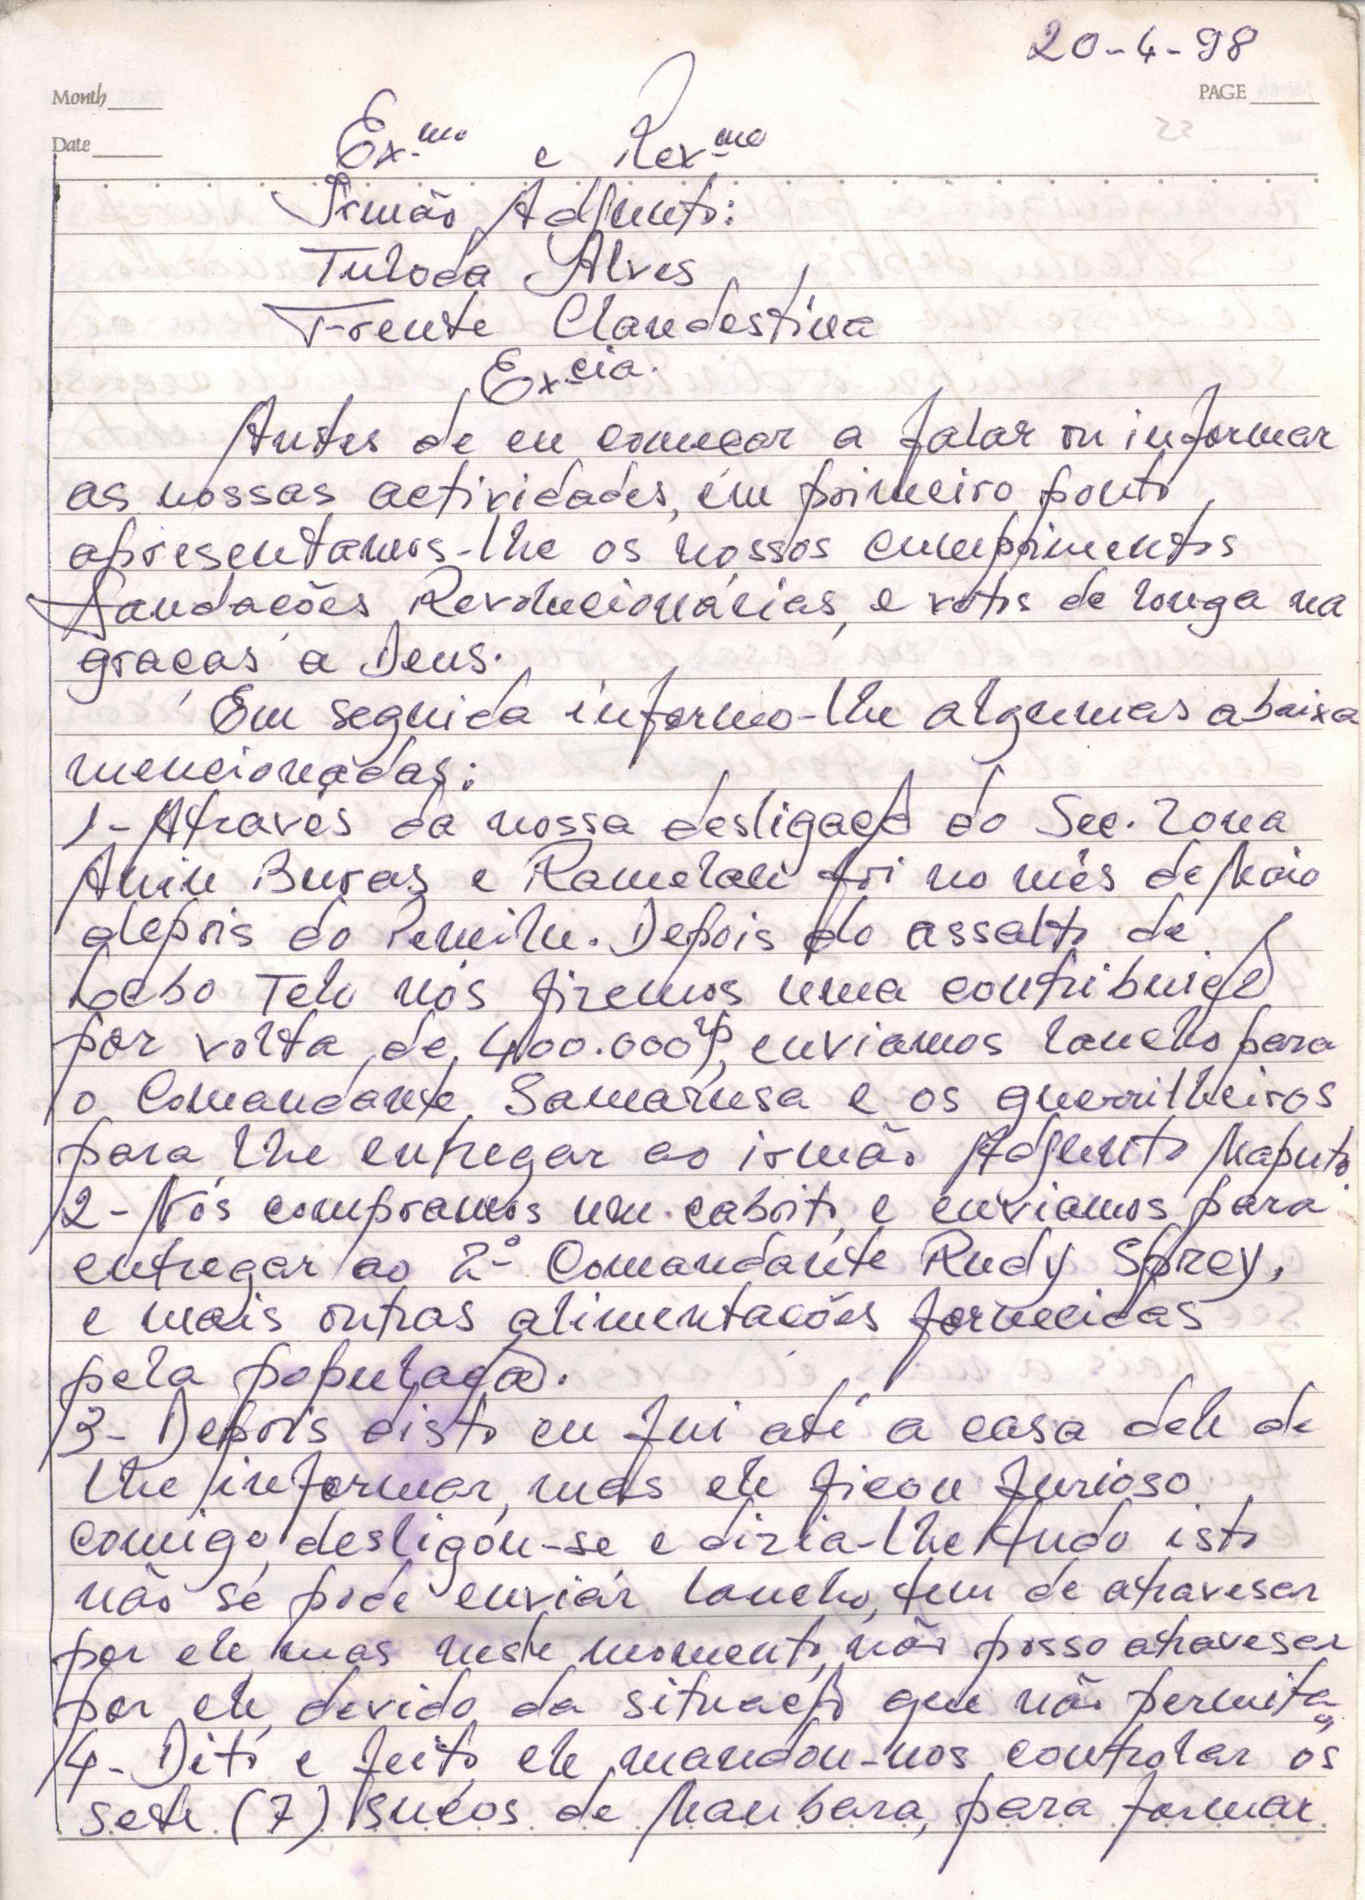 20-4-98
Month
PAGE
Date
Ex.mo e Rex.mo
Irmão Adjunto:
Tuloda Alves
Frente Clandestina
Ex.cia.
Antes de eu começar a falar ou informar
as nossas actividades, em primeiro ponto,
apresentamos-lhe os nossos cumprimentos
Saudações Revolucionárias, e votos de longa na
graças a Deus.
Em seguida informo-lhe algumas abaixa
mencionadas:
1- Através da nossa desligação do Sec. Zona
Amin Buras e Ramelau foi no mês de Maio
depois do Pemilu. Depois do assalto de
Lebo Telo nós fizemos uma contribuição
por volta de 400.000 rp, enviamos lancho para
o Comandante Samarusa e os guerrilheiros
para lhe entregar ao irmão Adjunto Maputo.
2- Nós compramos um cabrito e enviamos para
entregar ao 2º Comandante Rudy Sprey,
e mais outras alimentações fornecidas
pela população.
3- Depois disto eu fui até a casa dele de
lhe informar, mas ele ficou furioso
comigo, desligou-se e dizia-lhe tudo isto
não se pode enviar lancho, tem de atravesar
por ele, mas neste momento, não posso atravesar
por ele, devido da situação que não permita
4- Dito e feito ele mandou-nos controlar os
sete (7) sucos de Maubara, para formar